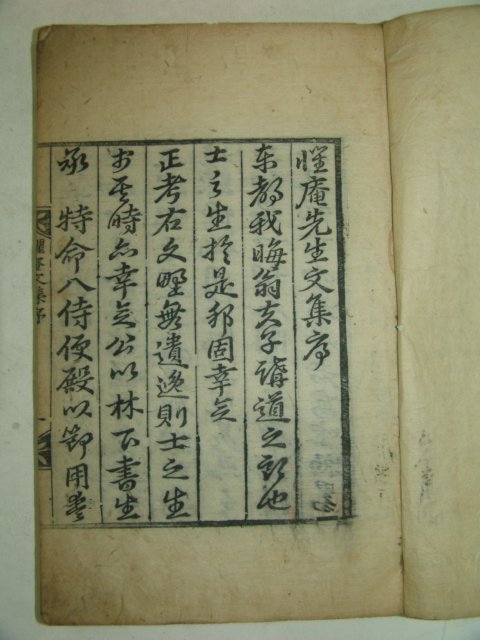 懼庵先生文集序
東都我晦翁夫子講道之鄕也
士之生於是邦固幸矣
正考右文野無遺逸則士之生
於其時亦幸矣公以林下書生
承 特命入侍便殿以節用愛
懼庵文集序